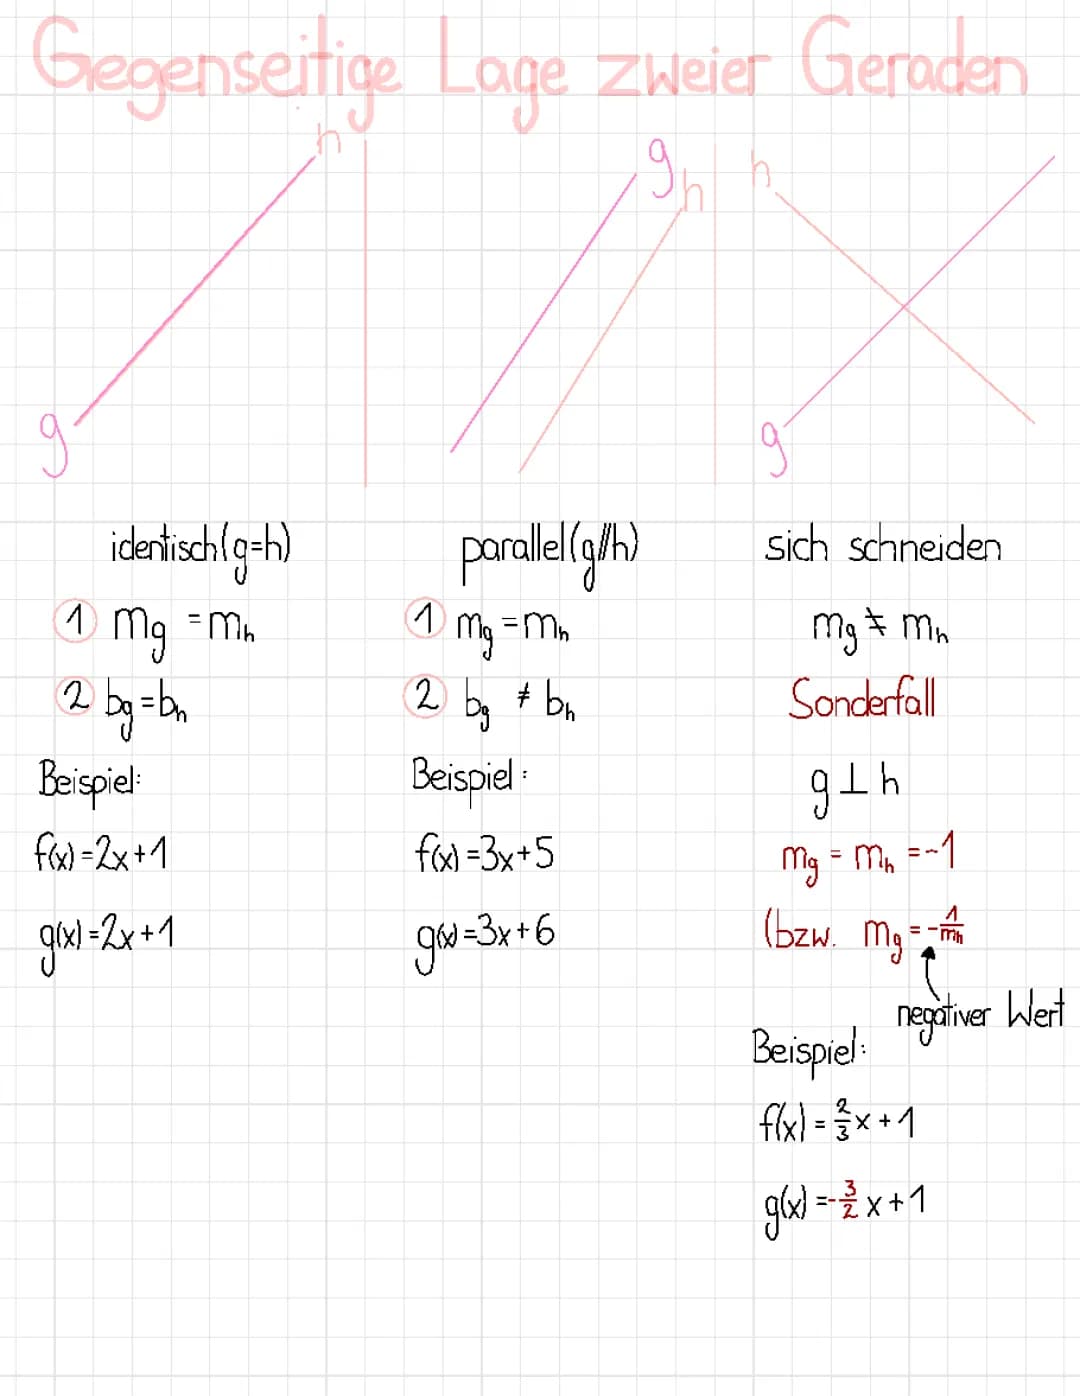 Gegenseitige Lage zweier Geraden
h
g
g
h
h
g
identisch (g=h)
① mg = mh
② bg = bh
Beispiel:
f(x) = 2x+1
g(x) = 2x+1
parallel (g//h)
① mg = mh
② bg ≠ bh
Beispiel:
f(x) = 3x+5
g(x) = 3x+6
sich schneiden
mg ≠ mh
Sonderfall
g ⊥ h
mg = mh = -1
(bzw. mg = -1/mh
negativer Wert
Beispiel:
f(x) = 2/3 x + 1
g(x) = -3/2 x + 1